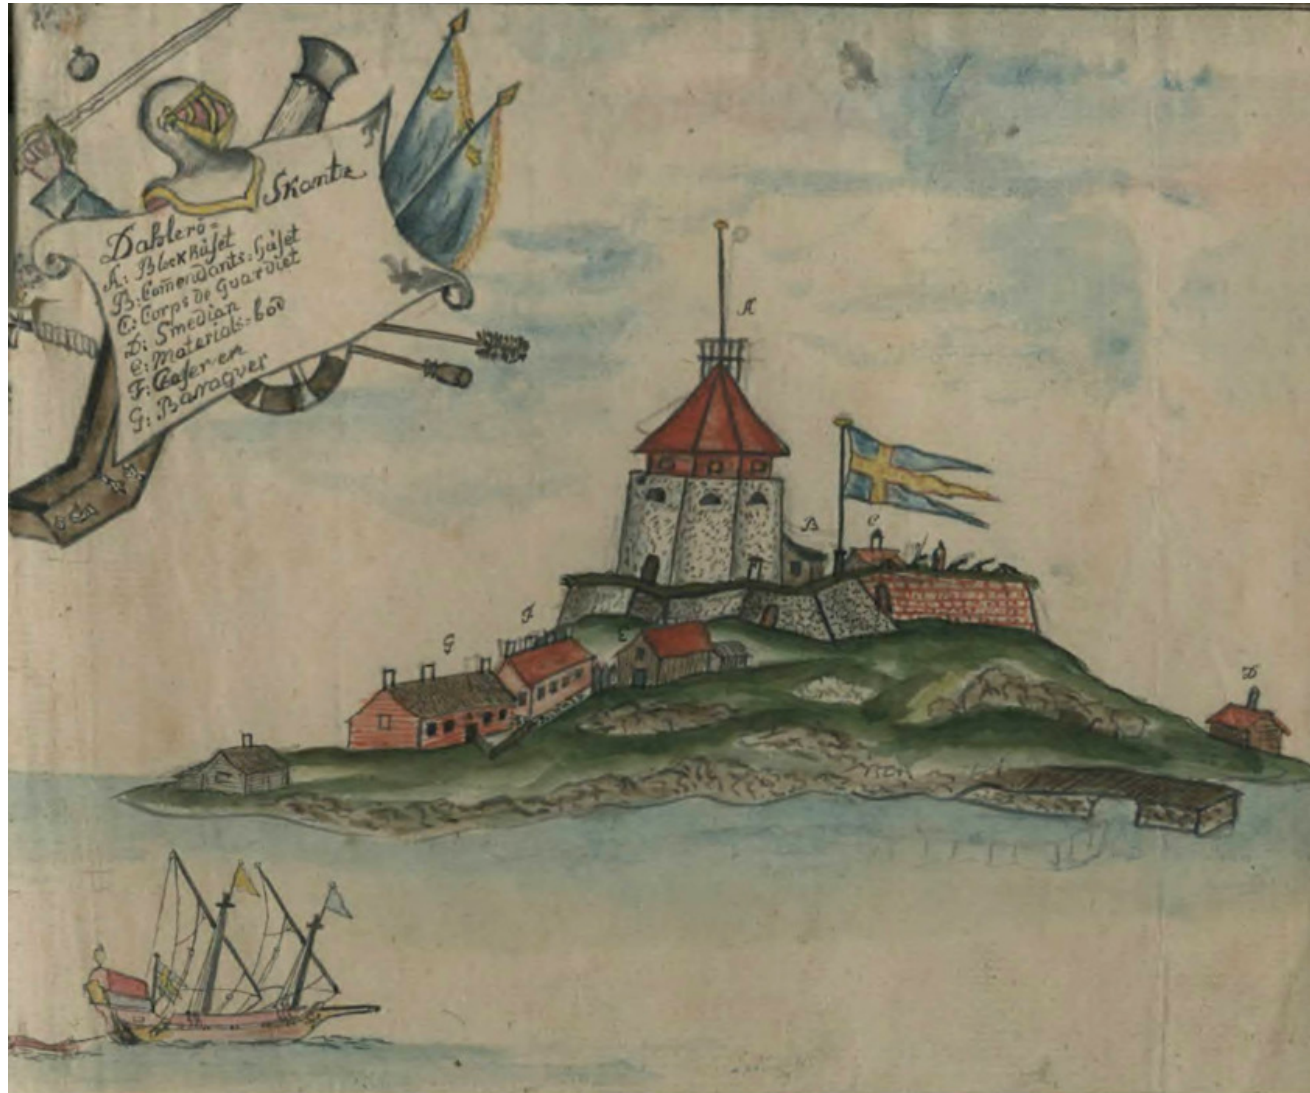 Dahlerö=
Skantz
A: Blockhúset
B: Com̄endants=húset
C: Corps de Guardiet
D: Smedian
E: Materials=bod
F: Caserven
G: Barraquer
A
B
C
F
E
G
D